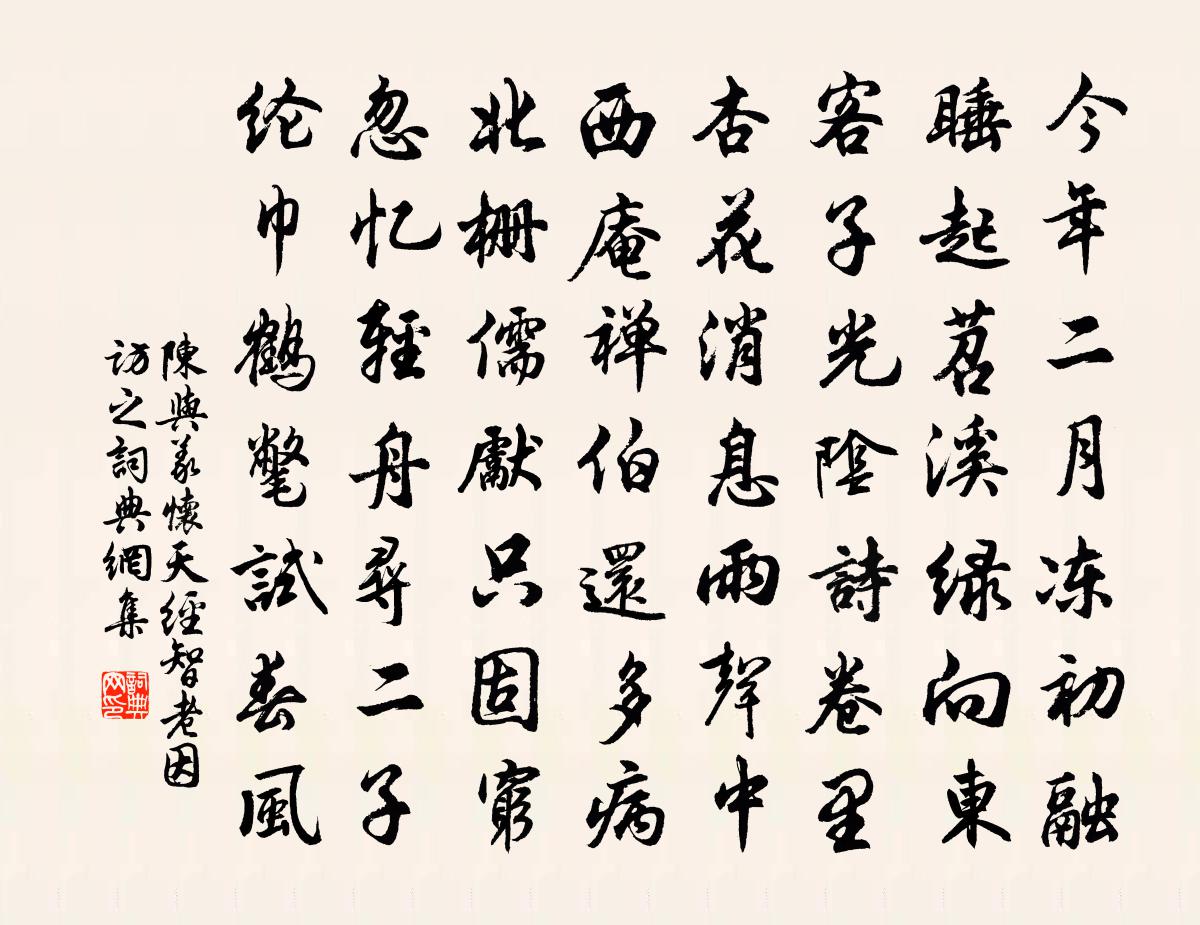 今年二月冻初融
睡起苕溪绿向東
客子光陰詩卷里
杏花消息雨聲中
西庵禅伯還多病
北栅儒獻只固窮
忽忆輕舟尋二子
纶巾鶴氅試春風
陳與義懷天經智老因
訪之詞典網集
詞典网印